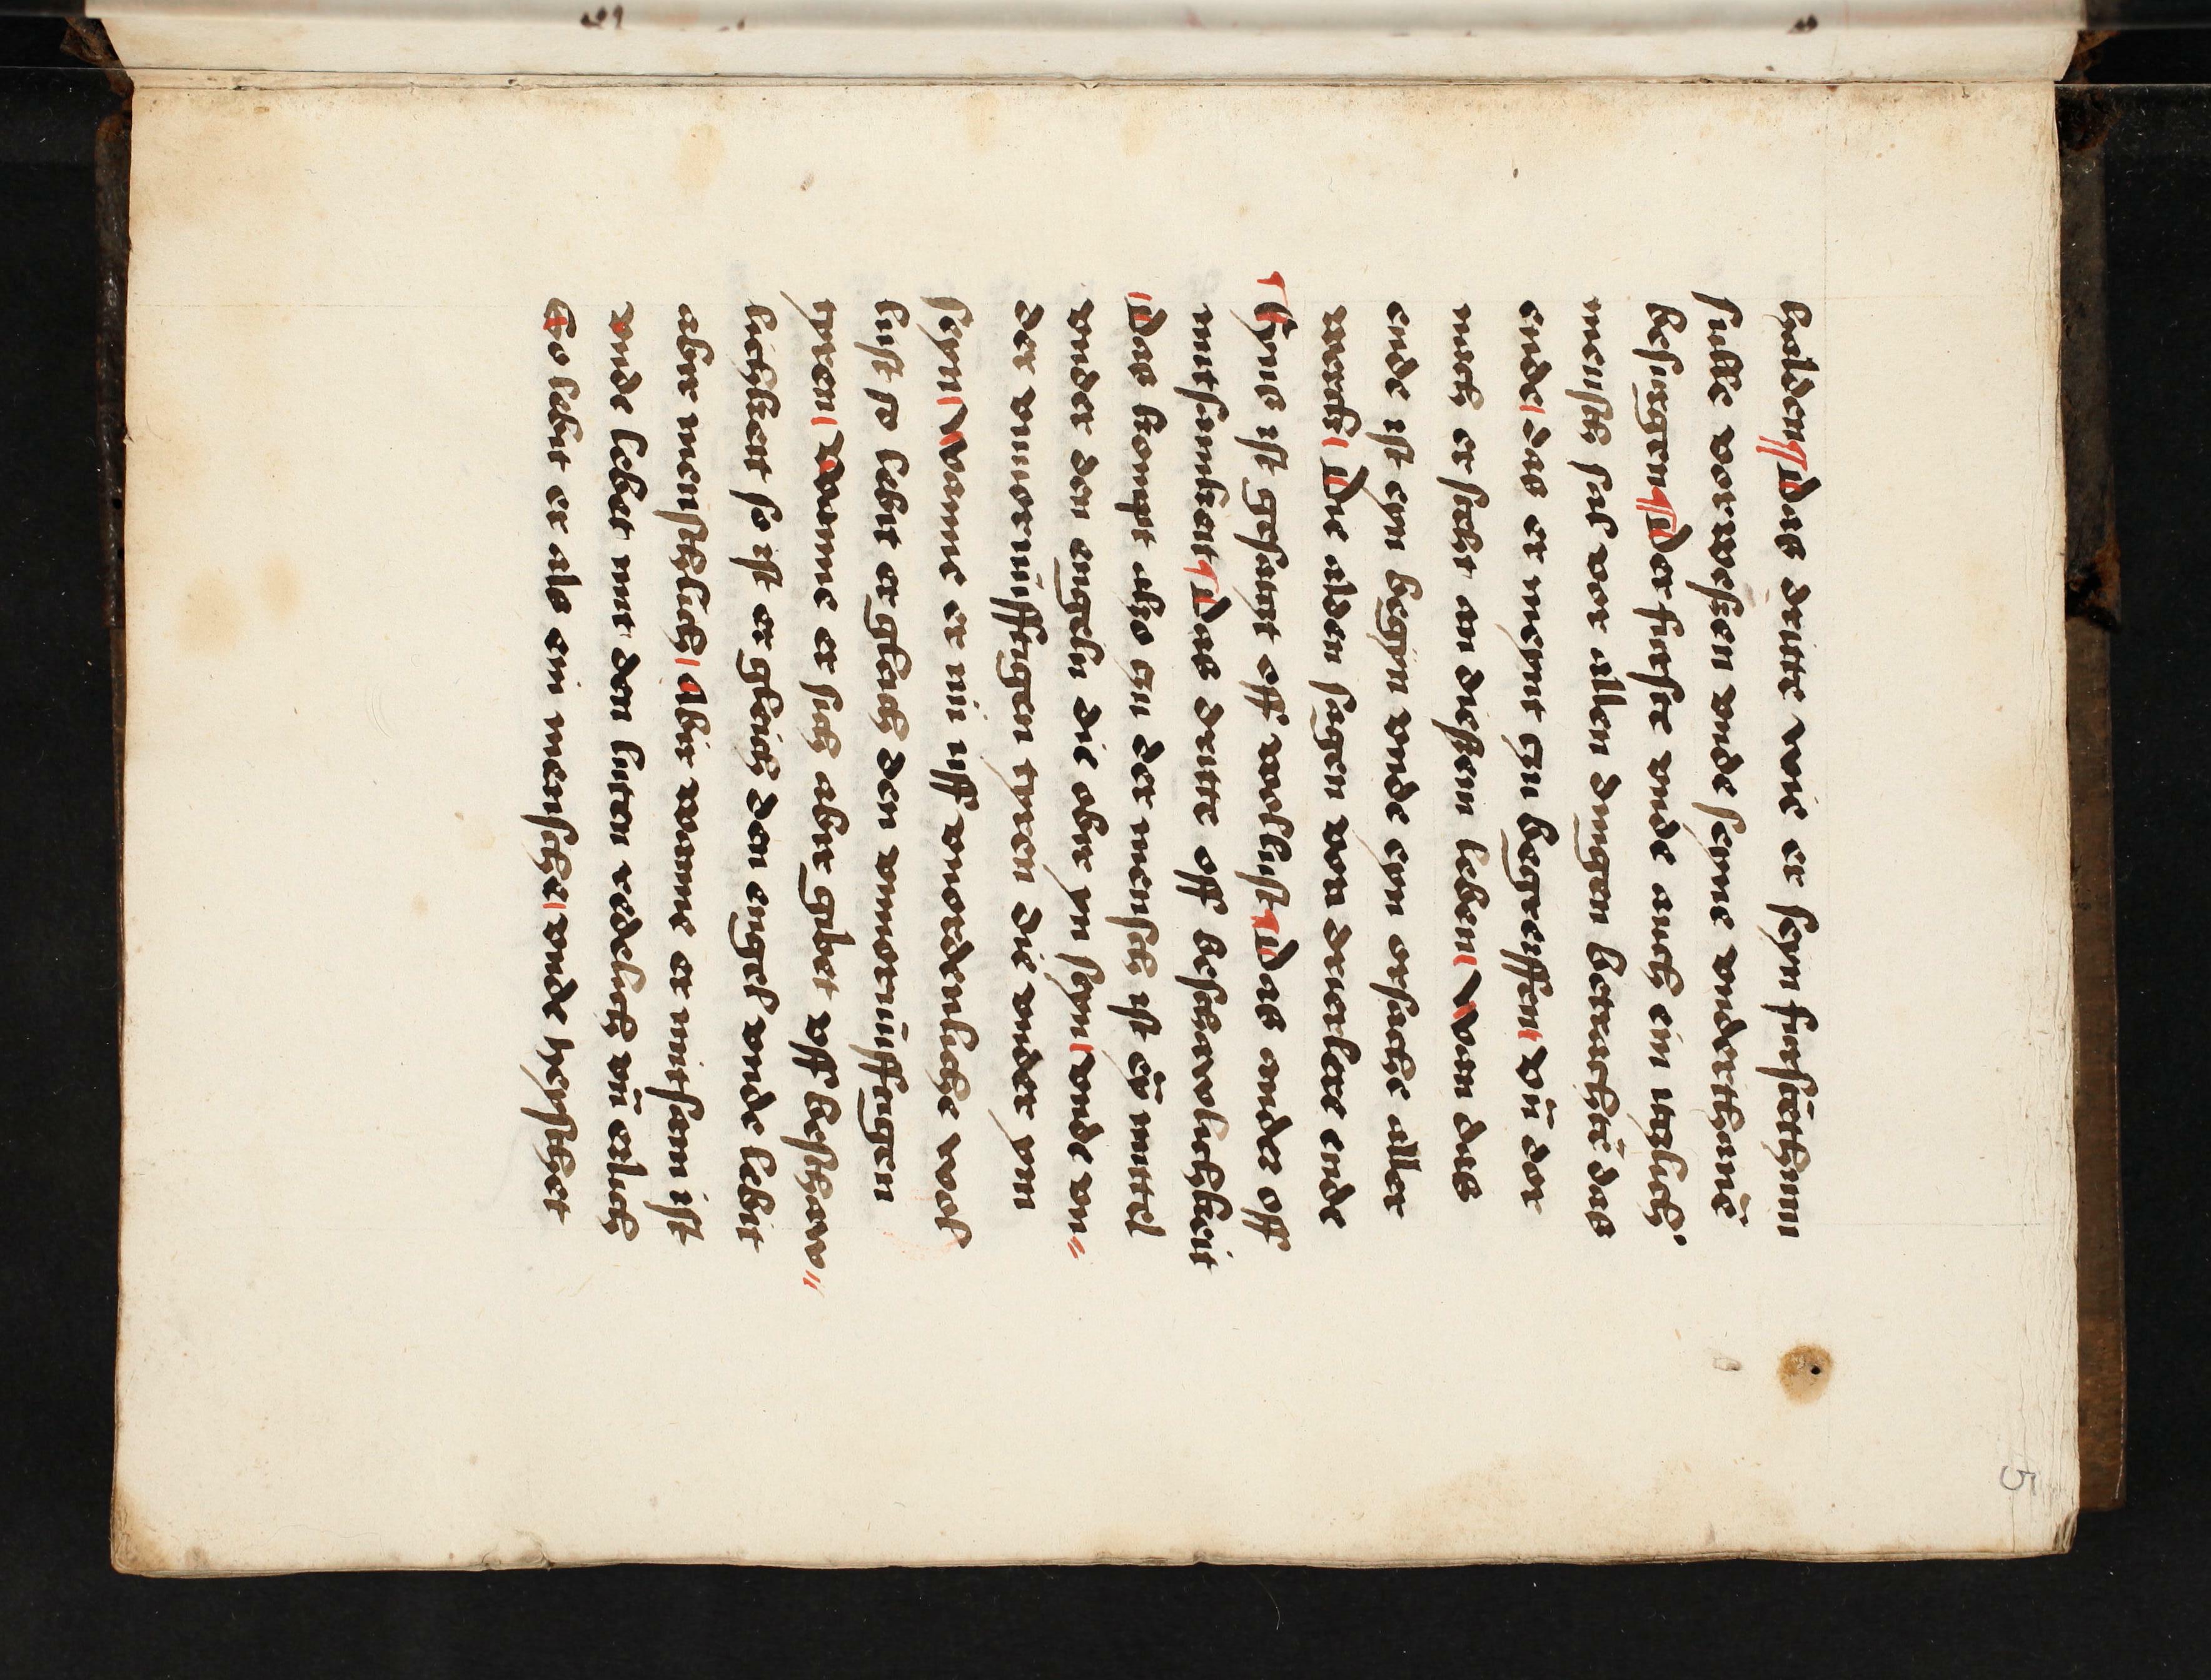 halden ¶ Das dritte wie er seyn furstēthum
sulle vorweßen vnde seyne vnderthanē
besurgen ¶ Der furste vnde auch ein itzlich'
mensch sal vor allen dingen betrachtē das
ende / das er meynt zu begreiffen / vn̄ dor
noch er stehe an dießem leben / Wan das
ende ist eyn begyn vnde eyn orsache aller
werck / Die alden sagen von drierleie ende
¶ Eyns ist gesatzt off wollust ¶ Das ander off
mitsamkeit ¶ Das dritte off beschawlichkeit
/ Das kompt alzo zu der mensch ist eȳ mittel
vnder den engeln die obir ym seyn / vnde vn=
der vnuornūfftigen tyren die vnder ym
seyn / Wanne er nu uff vnordenliche wol
lust so lebit er gleich den vnuornūfftigen
tyren / Wenne er sich aber gibet vff beschaw=
lichkeit so ist er gleich den engel vnde lebit
aber menschlich / Abir wanne er mitsam ist
vnde lebet mit den luten redelich vn̄ erlich
So lebit er als ein mensche / vnde heyschet
5